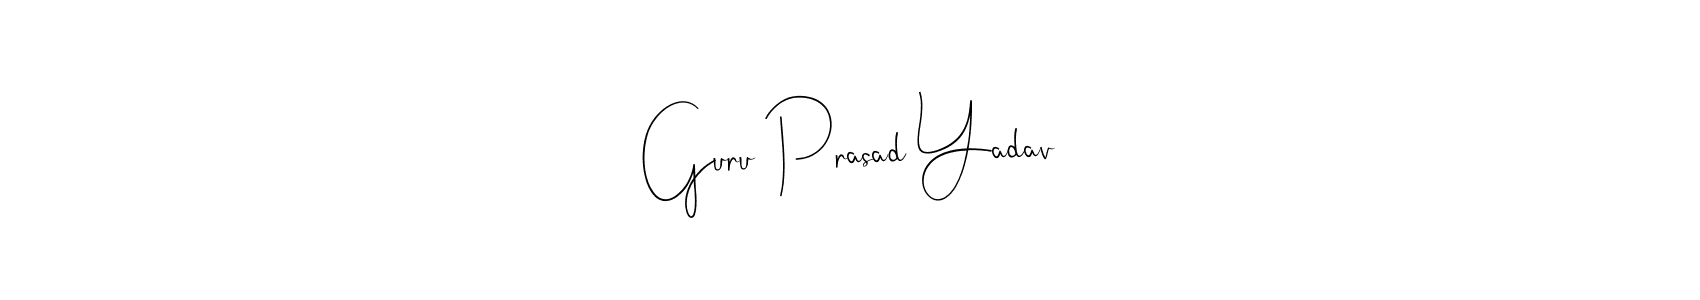 Guru Prasad Yadav